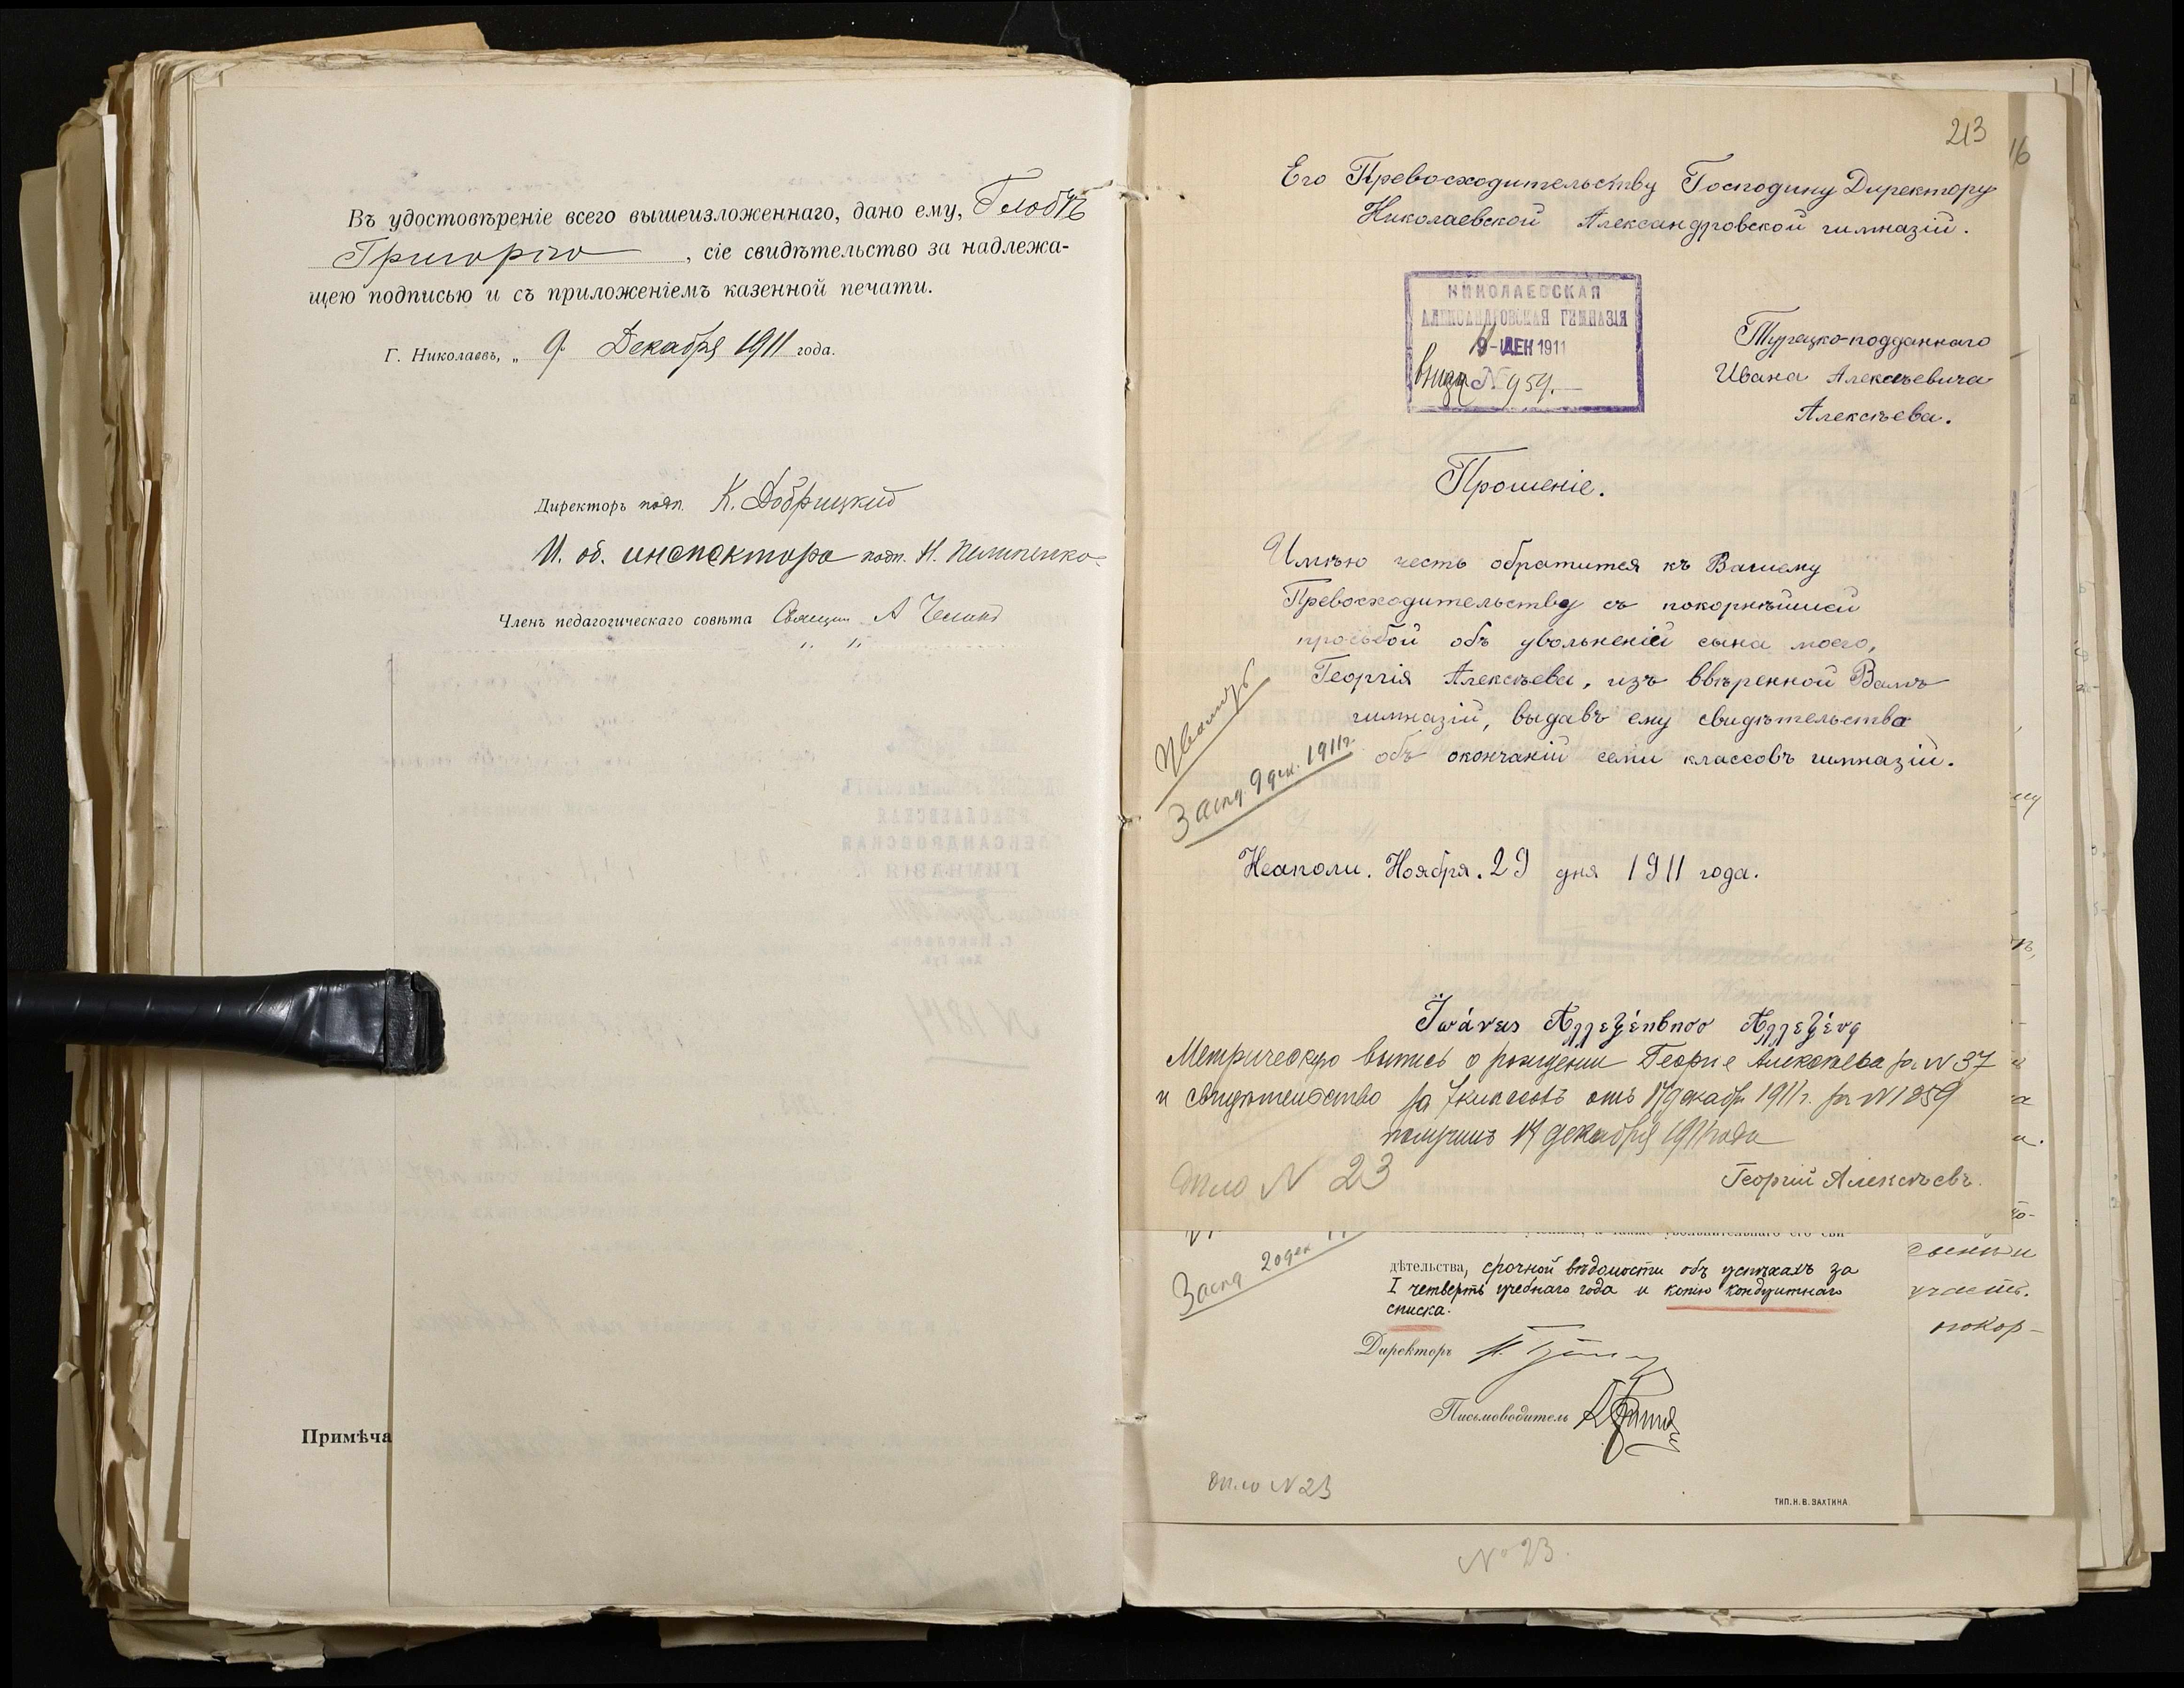 Въ удостовѣреніе всего вышеизложеннаго, дано ему, Глобѣ
Григорію, сіе свидѣтельство за надлежа-
щею подписью и съ приложеніемъ казенной печати.
Г. Николаевъ, „ 9 Декабря 1911 года.
Директоръ подп. К. Добрицкій
И. об. инспектора подп. Н.
Членъ педагогическаго совѣта Священ. А
Примѣча
213
16
Его Превосходительству Господину Директору
Николаевской Александровской гимназіи.
НИКОЛАЕВСКАЯ
АЛЕКСАНДРОВСКАЯ ГИМНАЗІЯ
9-ДЕК 1911
вход № 959.
Турецко-подданнаго
Ивана Алексѣевича
Алексѣева.
Прошеніе.
Имѣю честь обратится къ Вашему
Превосходительству съ покорнѣйшей
просьбой объ увольненіи сына моего,
Георгія Алексѣева, изъ ввѣренной Вамъ
гимназіи, выдавъ ему свидѣтельство
объ окончаніи семи классовъ гимназіи.
Засѣд. 9 дек. 1911 г.
Неаполи. Ноября. 29 дня 1911 года.
Метрическую выпись о рожденіи Георгія Алексѣева за N 37
и свидѣтельство за 7 классовъ отъ 17 декабр 1911 г. за N 1859
получилъ 17 декабря 1911 года
Георгій Алексѣевъ.
дѣло N 23
Засѣд 20 дек
дѣтельства, срочной вѣдомости объ успѣхахъ за
I четверть учебнаго года и копію кондуитнаго
списка.
Директоръ
Письмоводитель
дѣло N 23
ТИП. Н. В. ЗАХТИНА
покор-
№ 23.